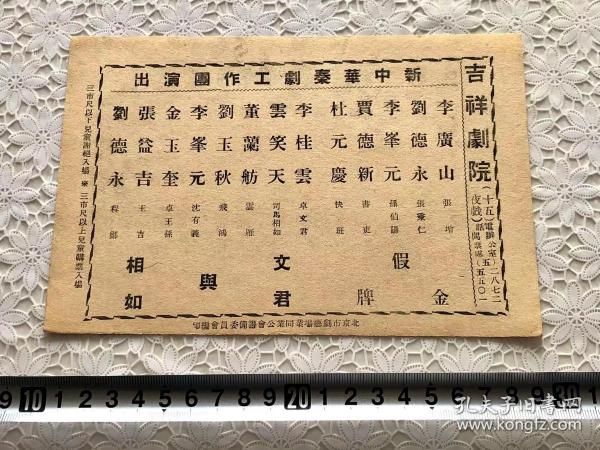 吉祥劇院
(十五夜戲)
電話
辦公室五.二八七二
售票處五.五五〇一
新中華秦劇工作團演出
李廣山 張增
劉德永 張秉仁
李峯元 孫伯陽
賈德新 書吏
杜元慶 快班
假金牌
李桂雲 卓文君
雲笑天 司馬相如
董蘭舫 雲雁
劉玉秋 飛鴻
李峯元 沈有義
金玉奎 卓王孫
張益吉 王吉
劉德永 程鄭
文君與相如
三市尺以下兒童謝絕入場 ※ 三市尺以上兒童購票入場
北京市戲藝場業同業公會籌備委員會編印
9 10 1 2 3 4 5 6 7 8 9 20 1 2 3 4 5 6 7 8 9
孔夫子旧書网
www.kongfz.com